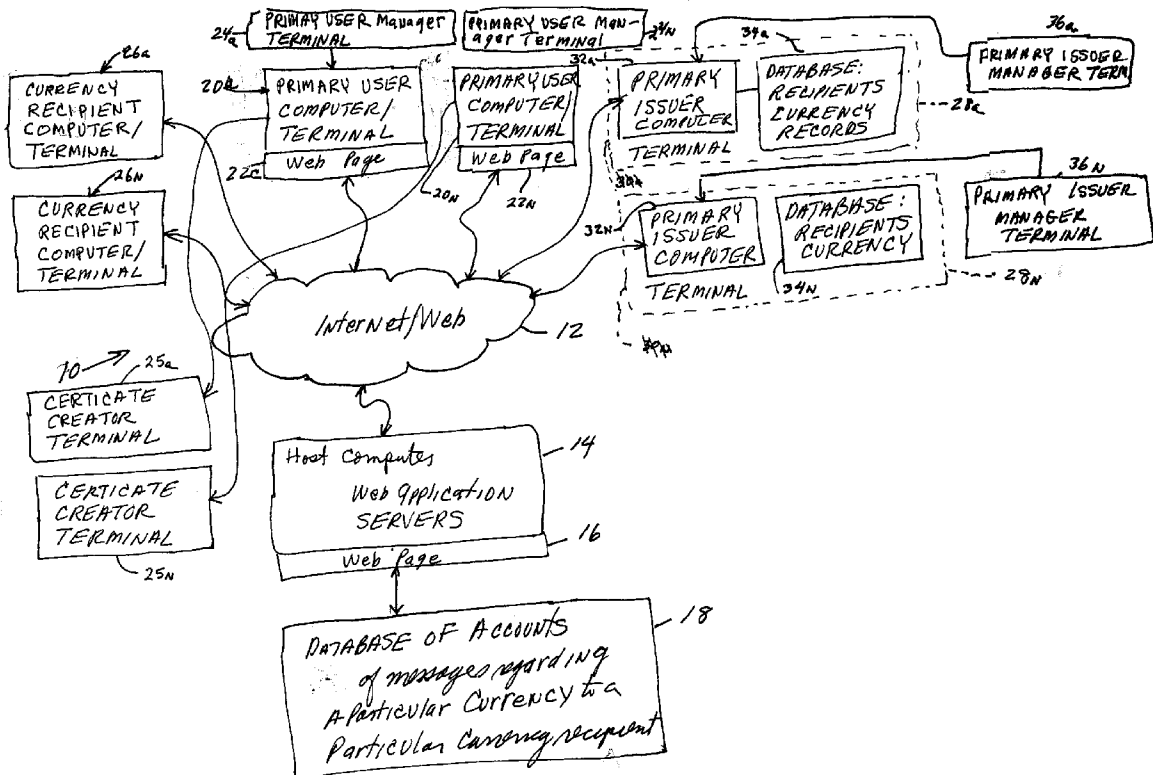 24a
PRIMAY USER Manager
TERMINAL
PRIMARY USER Man-
ager Terminal
24N
26a
CURRENCY
RECIPIENT
COMPUTER/
TERMINAL
26N
CURRENCY
RECIPIENT
COMPUTER/
TERMINAL
PRIMARY USER
COMPUTER/
TERMINAL
Web Page
22c
PRIMARY USER
COMPUTER/
TERMINAL
Web Page
20N
22N
32a
PRIMARY
ISSUER
COMPUTER
TERMINAL
34a
DATABASE:
RECIPIENTS
CURRENCY
RECORDS
28a
36a
PRIMARY ISSUER
MANAGER TERM
32N
PRIMARY
ISSUER
COMPUTER
TERMINAL
DATABASE:
RECIPIENTS
CURRENCY
34N
28N
36N
PRIMARY ISSUER
MANAGER
TERMINAL
Internet/Web
12
10
25a
CERTICATE
CREATOR
TERMINAL
CERTICATE
CREATOR
TERMINAL
25N
Host Computes
Web Application
SERVERS
14
Web Page
16
DATABASE OF ACCOUNTS
of messages regarding
A Particular CURRENCY to a
Particular Currency recipient
18